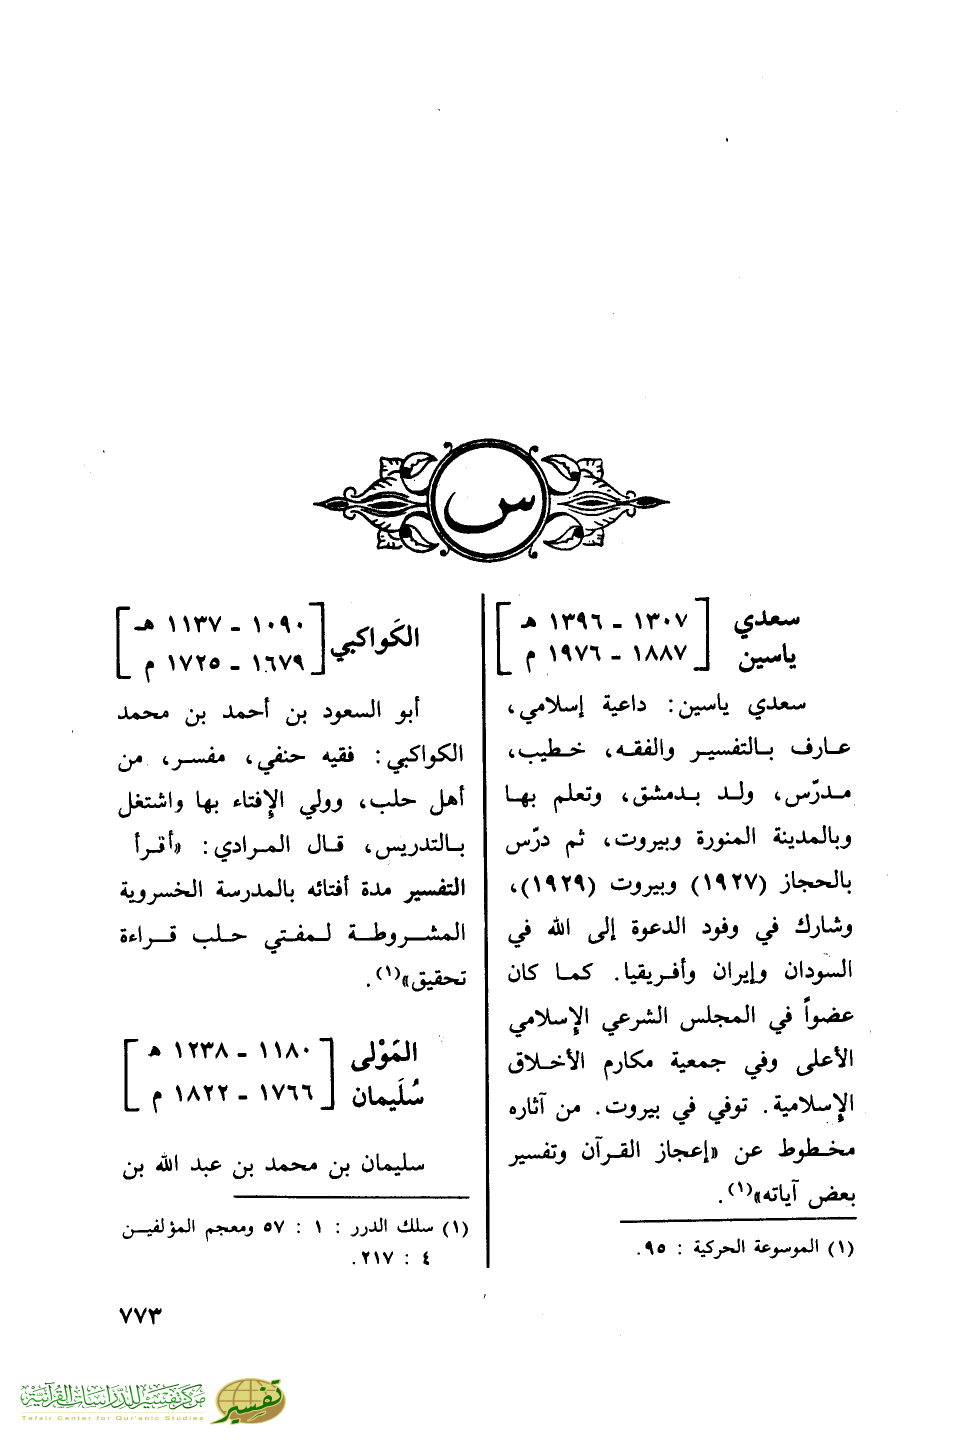 س
سعدي
ياسين
[ ١٣٠٧ ـ ١٣٩٦ هـ
١٨٨٧ ـ ١٩٧٦ م ]
سعدي ياسين: داعية إسلامي،
عارف بالتفسير والفقه، خطيب،
مدرّس، ولد بدمشق، وتعلم بها
وبالمدينة المنورة وبيروت، ثم درّس
بالحجاز (١٩٢٧) وبيروت (١٩٢٩)،
وشارك في وفود الدعوة إلى الله في
السودان وإيران وأفريقيا. كما كان
عضواً في المجلس الشرعي الإسلامي
الأعلى وفي جمعية مكارم الأخلاق
الإسلامية. توفي في بيروت. من آثاره
مخطوط عن «إعجاز القرآن وتفسير
بعض آياته»(١).
(١) الموسوعة الحركية : ٩٥.
الكَواكبي
[ ١٠٩٠ ـ ١١٣٧ هـ
١٦٧٩ ـ ١٧٢٥ م ]
أبو السعود بن أحمد بن محمد
الكواكبي: فقيه حنفي، مفسر، من
أهل حلب، وولي الإفتاء بها واشتغل
بالتدريس، قال المرادي: «أقرأ
التفسير مدة أفتائه بالمدرسة الخسروية
المشروطة لمفتي حلب قراءة
تحقيق»(١).
المَوْلى
سُلَيمان
[ ١١٨٠ ـ ١٢٣٨ هـ
١٧٦٦ ـ ١٨٢٢ م ]
سليمان بن محمد بن عبد الله بن
(١) سلك الدرر : ١ : ٥٧ ومعجم المؤلفين
٤ : ٢١٧.
٧٧٣
مركز تفسير للدراسات القرآنية
Tafsir Center for Qur'anic Studies
تفسير